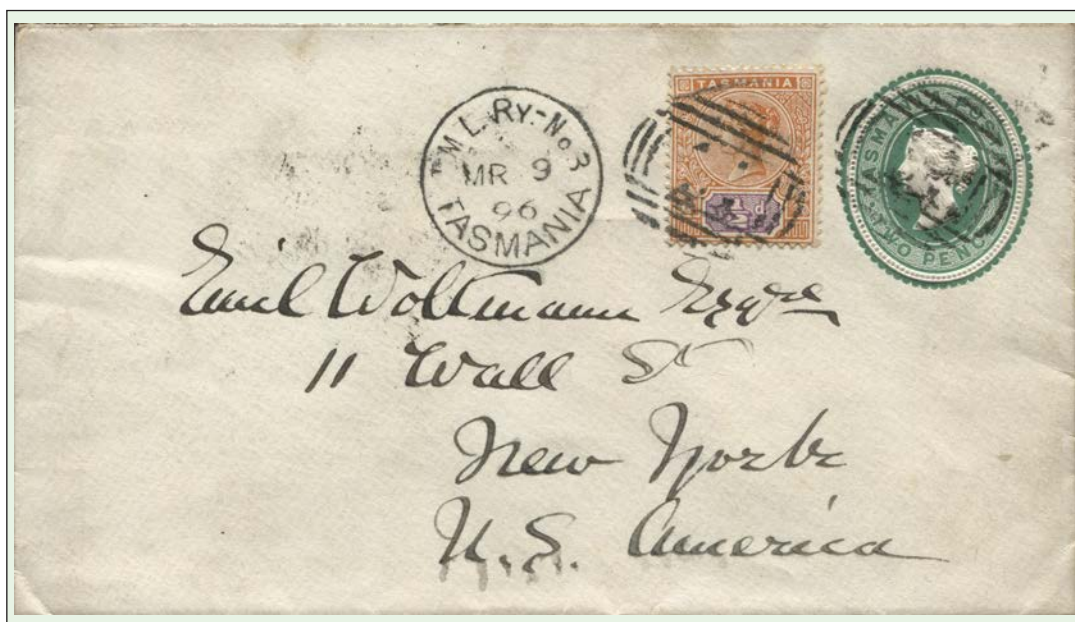 T.M.L.RY.-No 3
MR 9
96
TASMANIA
TASMANIA
½d
TASMANIA
TWO PENCE
Emil Woltmann Esqre
11 Wall St
New York
U.S. America